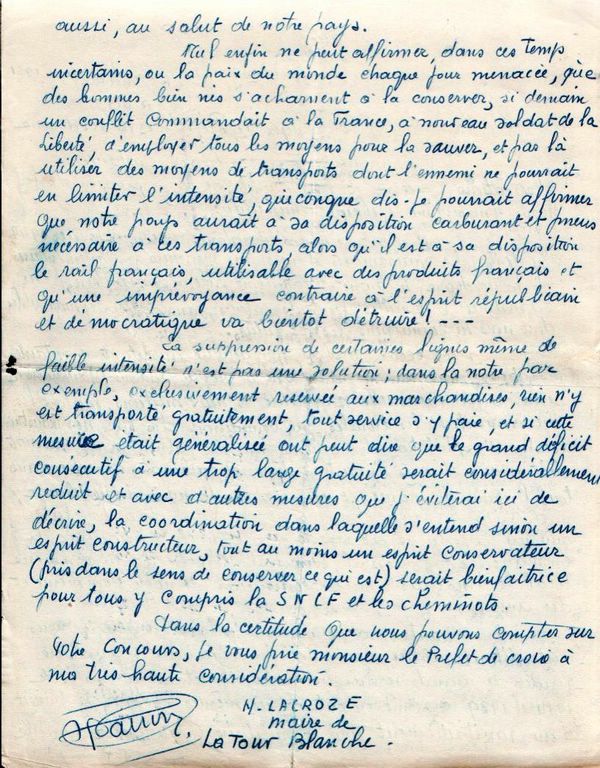 aussi, au salut de notre pays.
Nul enfin ne peut affirmer, dans ces temps
incertains, ou la paix du monde chaque jour menacée, que
des hommes bien nés s'acharnent à la conserver, si demain
un conflit commandait à la France, à nouveau soldat de la
Liberté, d'employer tous les moyens pour la sauver, et par là
utiliser des moyens de transports dont l'ennemi ne pourrait
en limiter l'intensité, quiconque dis-je pourrait affirmer
que notre pays aurait à sa disposition carburant et pneus
nécessaire à ces transports, alors qu'il est à sa disposition
le rail français, utilisable avec des produits français et
qu'une imprévoyance contraire à l'esprit républicain
et démocratique va bientot détruire ! ---
La suppression de certaines lignes même de
faible intensité n'est pas une solution ; dans la notre par
exemple, exclusivement reservée aux marchandises, rien n'y
est transporté gratuitement, tout service s'y paie, et si cette
mesure était généralisée ont peut dire que le grand déficit
consécutif à une trop large gratuité serait considérablement
reduit et avec d'autres mesures que j'éviterai ici de
décrire, la coordination dans laquelle s'entend sinon un
esprit constructeur, tout au moins un esprit conservateur
(pris dans le sens de conserver ce qui est) serait bienfaitrice
pour tous y compris la SNCF et les cheminots.
Dans la certitude que nous pouvons compter sur
votre concours, je vous prie monsieur le Préfet de croire à
ma très haute considération.
M. LACROZE
maire de
La Tour Blanche.